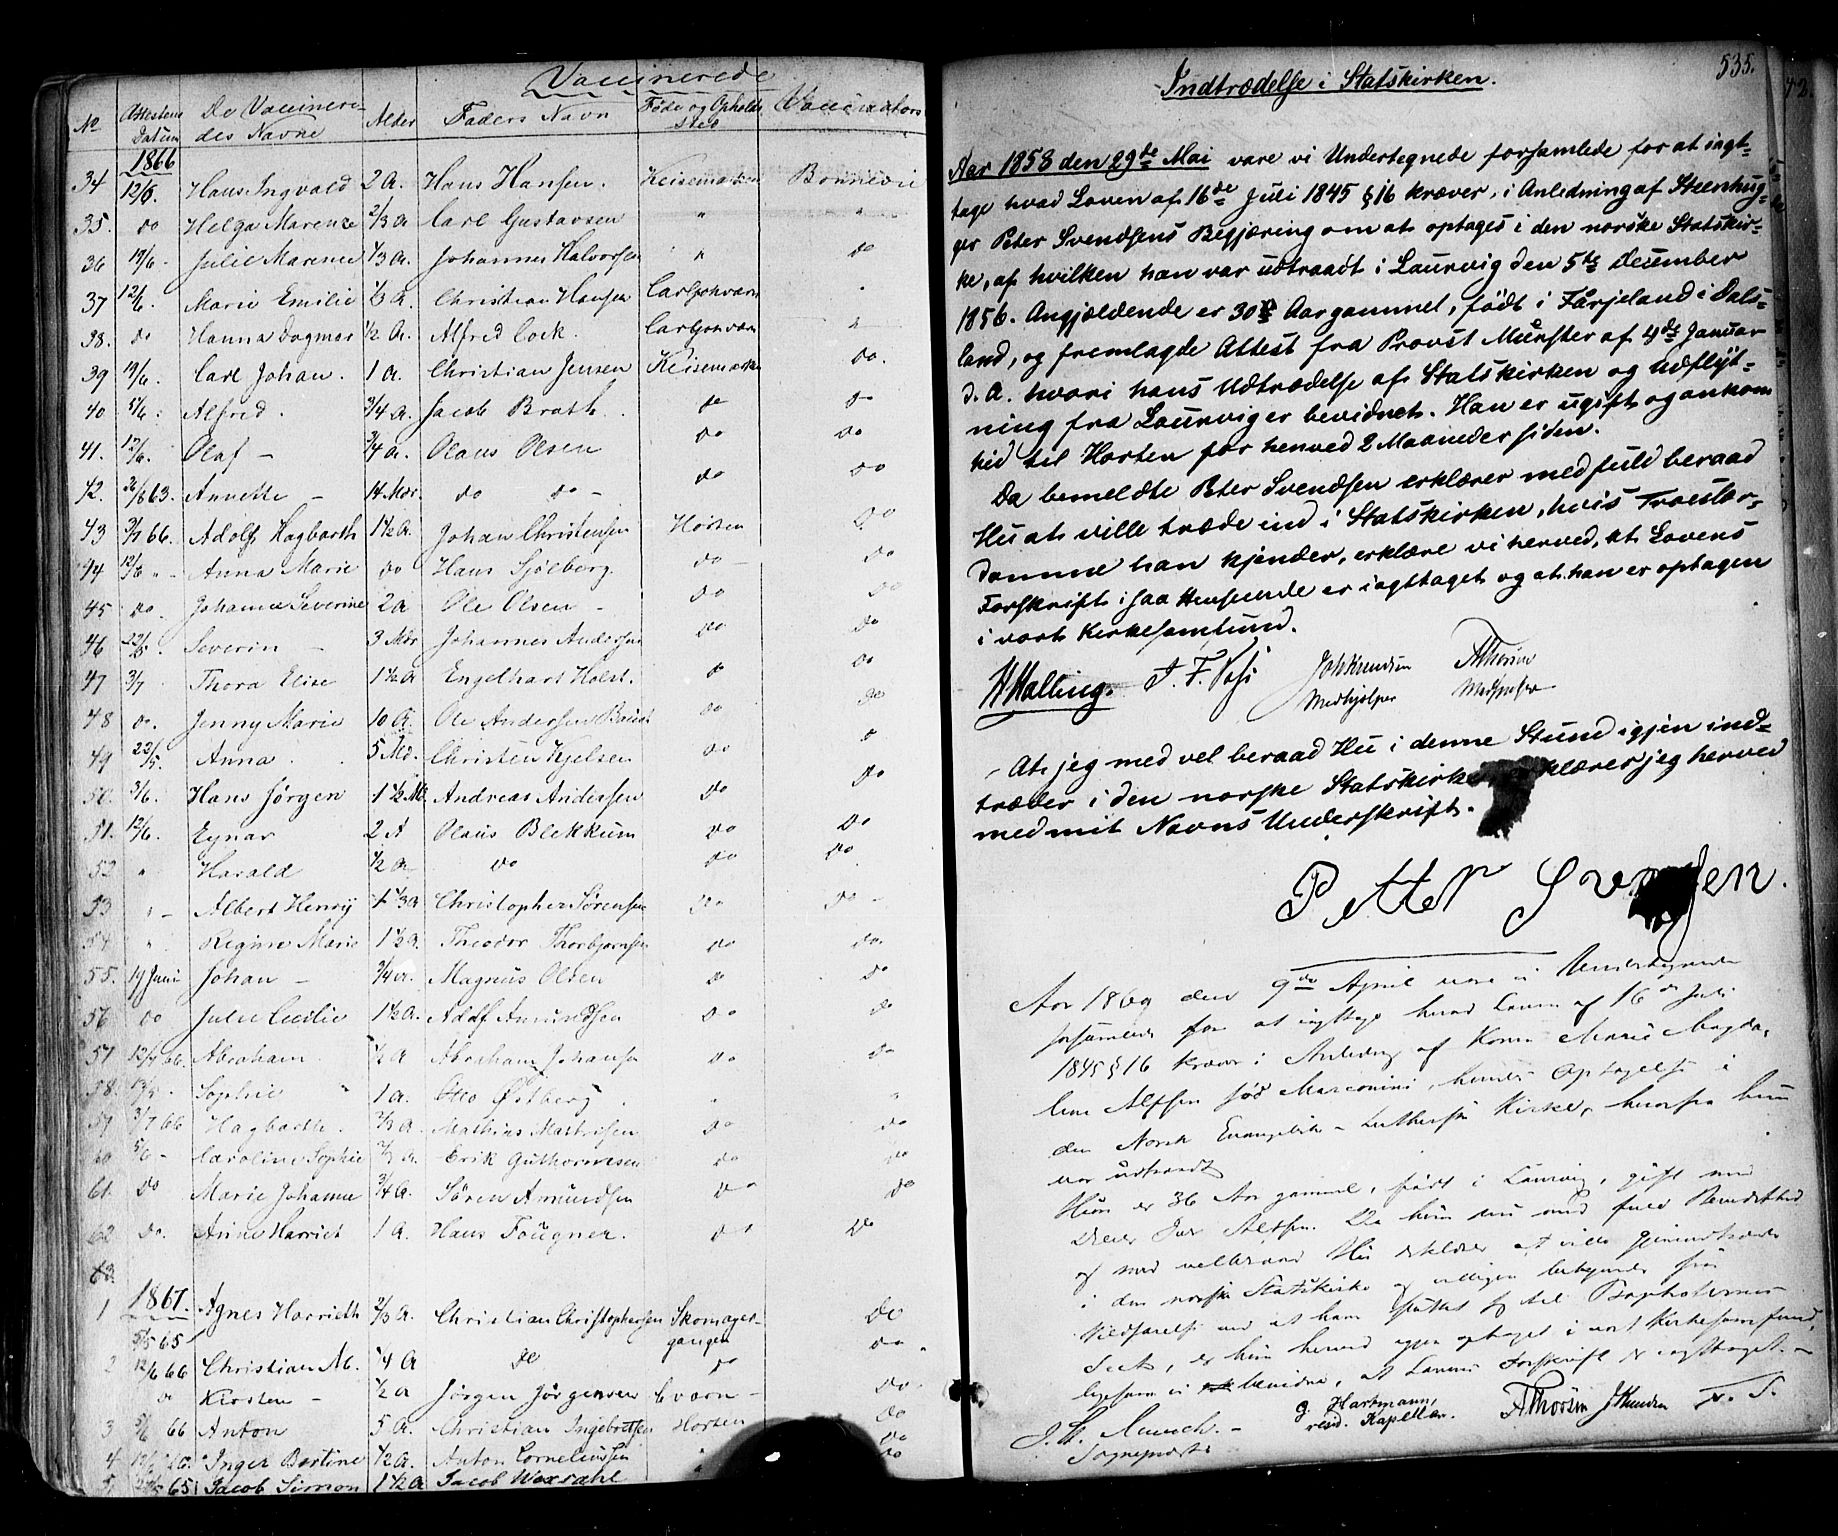 Vaccinerede
No Attestens Datum De Vaccinere-des Navne Alder Faders Navn Føde og Opholds Sted Vaccinateurs
1866
34 12/6. Hans Ingvald 2 A. Hans Hansen. Keisemarken Bonnevie
35. do Helga Marense 2/3 A Carl Gustavsen " "
36 19/6 - Julie Marense 1/3 A. Johannes Halvorsen " do
37 12/6. Marie Emilie 1/3 A. Christian Hansen Carljohværn "
38. do Hanna Dagmar 1/2 A. Alfred Cock. Carljohværn "
39 19/6. Carl Johan. 1 A. Christian Jensen Keisemarken do.
40 5/6. Alfred. 3/4 A. Jacob Brath. do do
41. 12/6. Olaf - 3/4 A. Olaus Olsen do do
42. 26/6 63. Annette - 14 Mdr. do do - do do
43 3/7 66. Adolf Hagbarth 1 1/2 A. Johan Christensen Horten do
44 12/6 " - Anna Marie do Hans Sjølberg. do do
45 do. Johanne Severine 2 A Ole Olsen - do do
46 22/5. Severin - 3 Mdr Johannes Andersen do do
47 3/7 Thora Elise 1 1/2 A Engelhart Holst. do do
48 do. Jenny Marie 10 A. Ole Andersen do do
49 22/5. Anna. 5 Md. Christen Kjelsen do do
50. 3/6. Hans Jørgen 1 1/2 Md Andreas Andersen do do
51. 12/6. Eynar 2 A Olaus Blekkum do do
52 " Harald 1/2 A. do do do
53 " - Albert Henry 1 1/3 A Christopher Sørensen do do -
54 " Regine Marie 1 1/2 A. Theodor Thorbjørnsen do do.
55. 19 Juni Johan - 3/4 A. Magnus Olsen do do
56 do Julie Cecilie 1 1/2 A. Adolf Amundsen do do
57 12/7 66. Abraham 1/2 A Abraham Johansen do do
58. Sophie " 1 A. Otto Østberg. " "
59 3/7 66 Hagbarth. 2/3 A. Mathias do do
60 5/6 - Caroline Sophie 2/3 A. Erik Guthormsen do do
61. do Marie Johanne 3/4 A. Sören Amundsen do do
62 do. Anne Harriet 1 A. Hans Fougner. do do
63.
1867.
1 5/5 65 Agnes Harrieth 2/3 A. Christian Christophersen Skomager-gangen do
2 12/6 66 Christian M. 1/4 A do do do.
do Kirsten - 1/2 A Jørgen Jørgensen Cværn - do
3 5/6 66 Anton 5 A. Christian Ingebretsen Horten do
4 Inger Bertine 1/2 A. Anton Corneliussen " do
5 65 Jacob Simon 1 1/2 A Jacob Woxdahl "
535.
Indtrædelse i Statskirken.
Aar 1858 den 29de Mai vare vi Undertegnede forsamlede for at iagt-
tage hvad Loven af 16de Juli 1845 § 16 kræver, i Anledning af Steenhug-
ger Peter Svendsens Begjæring om at optages i den norske Statskir-
ke, af hvilken han var udtraadt i Laurvig den 5te December
1856. Angjældende er 30 Aar gammel, født i Färjeland i Dals-
land, og fremlagde Attest fra Provst Münster af 4de Januar
d. A. hvori hans Udtrædelse af Statskirken og Udflyt-
ning fra Laurvig er bevidnet. Han er ugift og ankom
hid til Horten for henved 2 Maaneder siden.
Da bemeldte Peter Svendsen erklærer med fuld beraad
Hu at ville træde ind i Statskirken, hvis Troesbe-
domme han kjender, erklære vi herved, at Lovens
Forskrift i saa Henseende er iagttaget og at han er optagen
i vort Kirkesamfund.
H Halling. J. F. Joh Knudsen A Thorsen
Medhjelper Medhjelper
At jeg med vel beraad Hu i denne Stund igjen ind-
træder i den norske Statskirke erklærer jeg herved
med mit Navns Underskrift.
Petter Svensen.
Aar 1869 den 9de April vare vi Undertegnede
forsamlede for at iagttage hvad Loven af 16de Juli
1845 § 16 kræver i Anledng af Kone Marie Magda-
lene Alfsen fød Marconini, hendes Optagelse i
den Norsk Evangelisk - Lutherske Kirke, hvorfra hun
var udtraadt
Hun er 36 Aar gammel, født i Laurvig, gift med
Dreier Alfsen. Da hun nu med fuld Bevidsthed
og med velberaad Hu erklærer at ville gjenindtræde
i den norske Statskirke og villigen bekjender sin
Vildfarelse ved at have sluttet sig til Baptisternes
Sect, er hun herved igjen optaget i vort Kirkesamfund,
ligesom vi bevidne, at Lovens Forskrift er iagttaget. -
J. St. Munch. - Sognepræst G. Hartmann, resid. Kapellan. A Thorsen J Knudsen